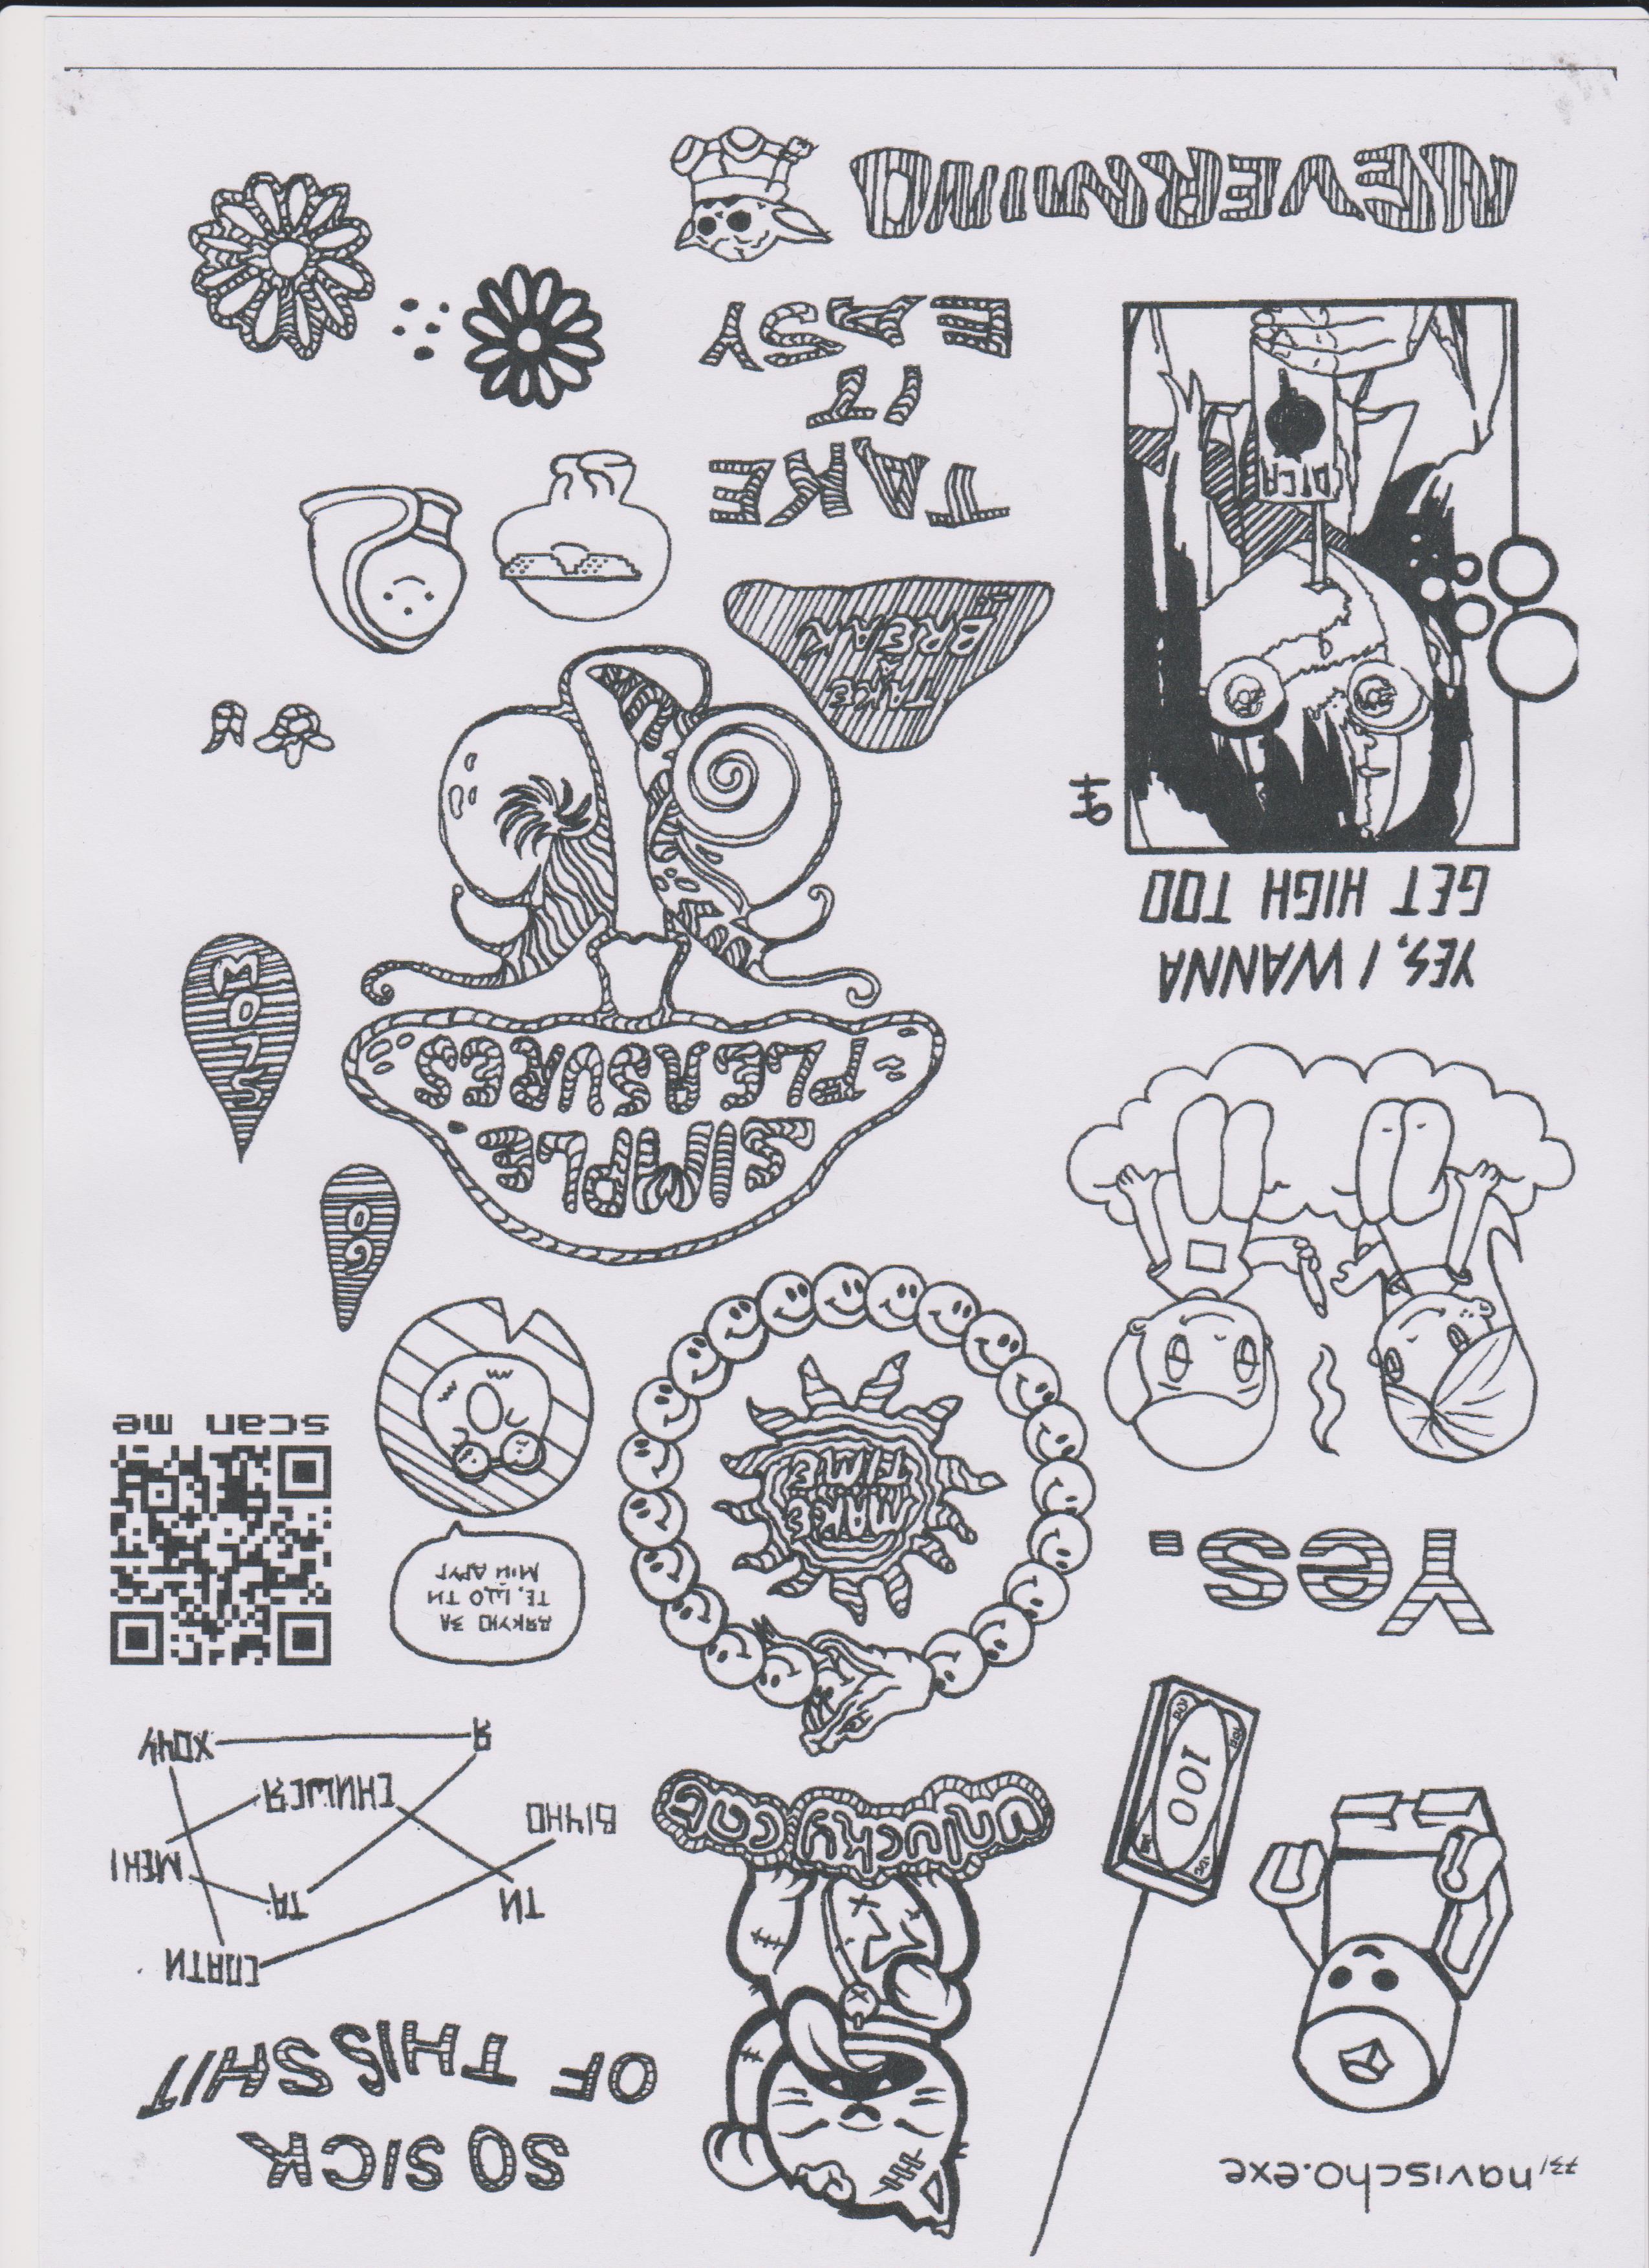 navischo.exe
100
unlucky cat
SO SICK
OF THIS SHIT
СПАТИ
ТИ
ТА
МЕНІ
ВІЧНО
СНИШСЯ
Я
ХОЧУ
Yes.
MAKE
TIME
ДЯКУЮ ЗА
ТЕ, ЩО ТИ
МІЙ ДРУГ
scan me
GO
SLOW
SIMPLE
PLEASURES
YES, I WANNA
GET HIGH TOO
TAKE
A
BREAK
TAKE
IT
EASY
NEVERMIND